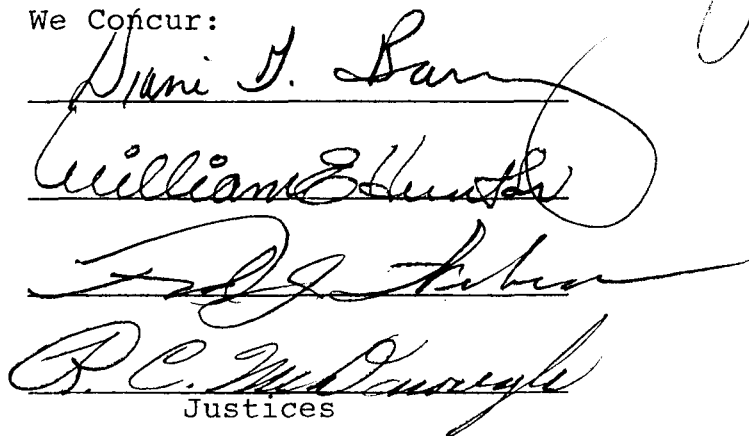 We Concur:
Diane G. Barz
William E Hunt Sr
Fred J. Weber
R. C. McDonough
Justices